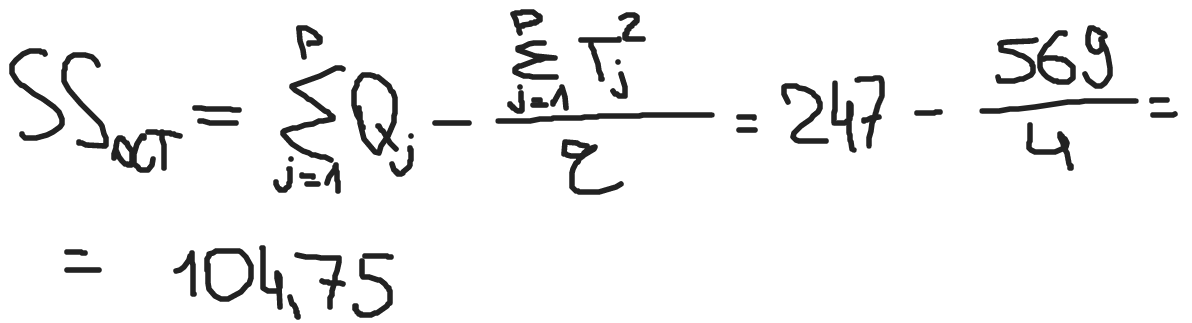 SS_ОСТ = Σ_{j=1}^{p} Q_j − (Σ_{j=1}^{p} T_j^2)/τ = 247 − 569/4 =
= 104,75